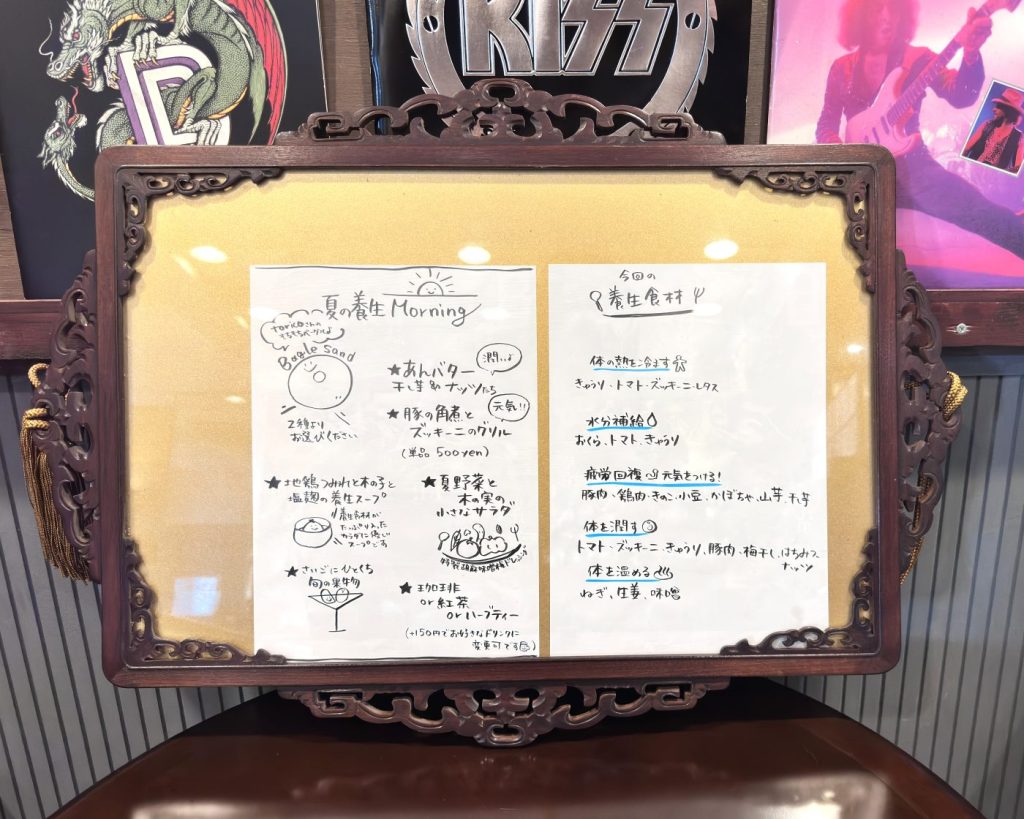 KISS
夏の養生 Morning
Bagle sand
2種より
お選びください
★あんバター
干し芋 & ナッツたち
潤いよ
★豚の角煮と
ズッキーニのグリル
元気!!
(単品 500yen)
★地鶏つみれと木の子と
塩麹の養生スープ
養生食材が
たっぷり入った
カラダに優しい
スープです
★夏野菜と
木の実の
小さなサラダ
特製胡麻味噌梅ドレッシング
★さいごにひとくち
旬の果物
★珈琲
or 紅茶
or ハーブティー
(+150円でお好きなドリンクに
変更可です)
今回の
養生食材
体の熱を冷ます
きゅうり、トマト、ズッキーニ、レタス
水分補給
おくら、トマト、きゅうり
疲労回複 元気をつける!
豚肉、鶏肉、きのこ、小豆、かぼちゃ、山芋、干芋
体を潤す
トマト、ズッキーニ、きゅうり、豚肉、梅干し、はちみつ、
ナッツ
体を温める
ねぎ、生姜、味噌